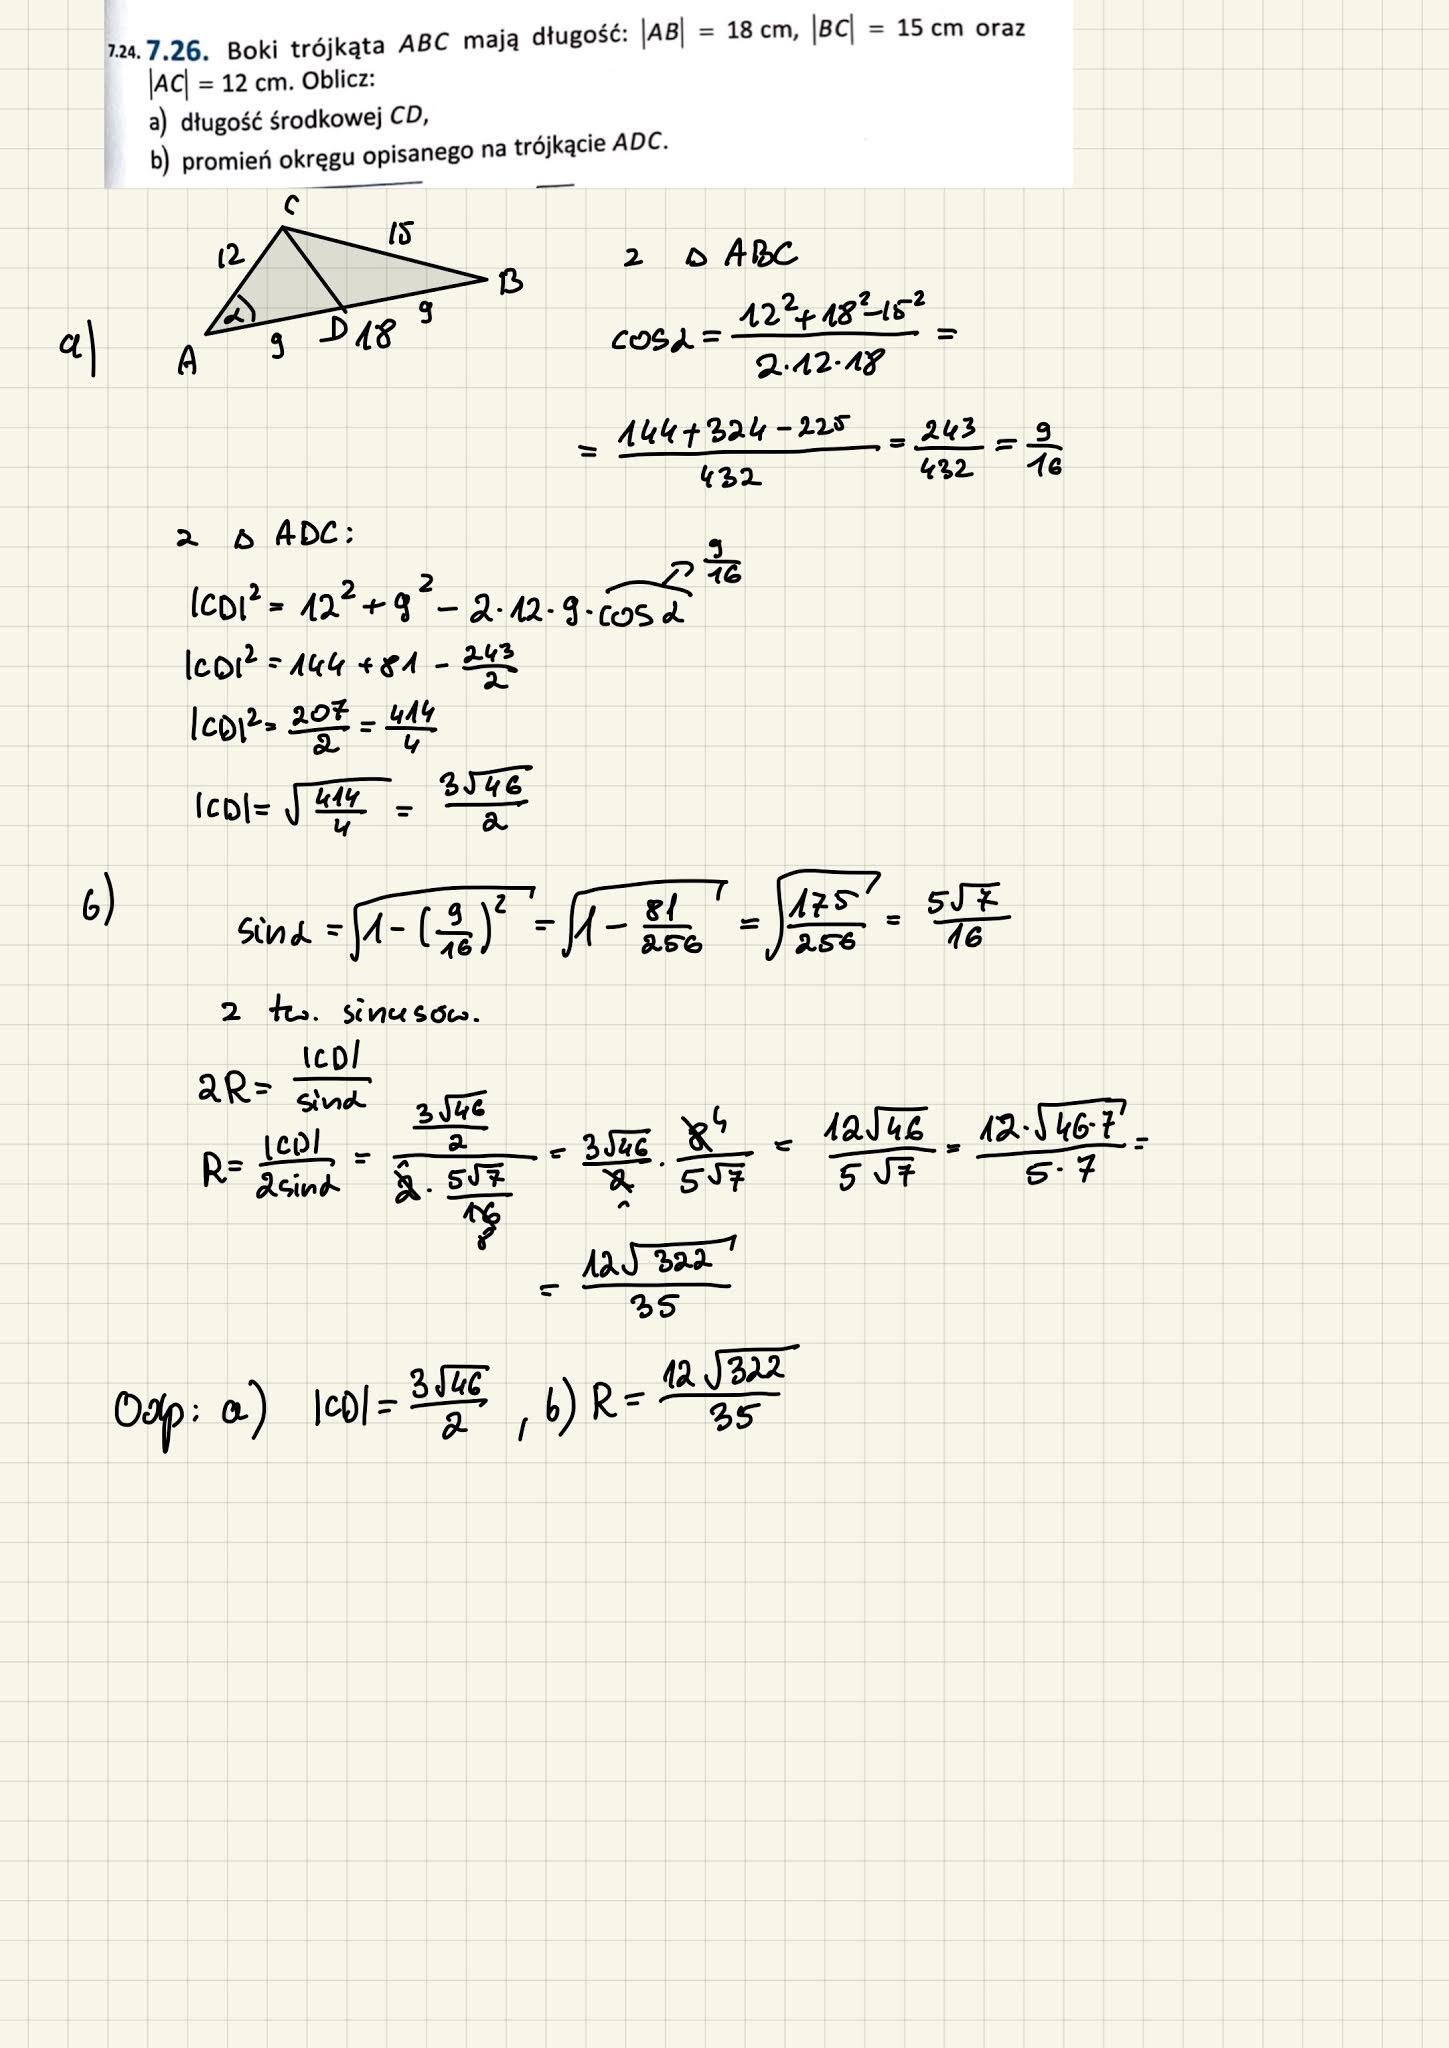 7.24. 7.26. Boki trójkąta ABC mają długość: |AB| = 18 cm, |BC| = 15 cm oraz
|AC| = 12 cm. Oblicz:
a) długość środkowej CD,
b) promień okręgu opisanego na trójkącie ADC.
a)
C
12
15
B
α
9
D
18
9
A
z △ ABC
cosα = (12² + 18² - 15²)/(2·12·18) =
= (144 + 324 - 225)/432 = 243/432 = 9/16
z △ ADC:
9/16
|CD|² = 12² + 9² - 2·12·9·cosα
|CD|² = 144 + 81 - 243/2
|CD|² = 207/2 = 414/4
|CD| = √(414/4) = 3√46/2
b)
sinα = √(1 - (9/16)²) = √(1 - 81/256) = √(175/256) = 5√7/16
z tw. sinusów.
2R = |CD|/sinα
R = |CD|/(2sinα) = (3√46/2)/(2 · 5√7/16) = 3√46/2 · 8/(5√7) = 12√46/(5√7) = 12·√(46·7)/(5·7) =
= 12√322/35
Odp: a) |CD| = 3√46/2, b) R = 12√322/35